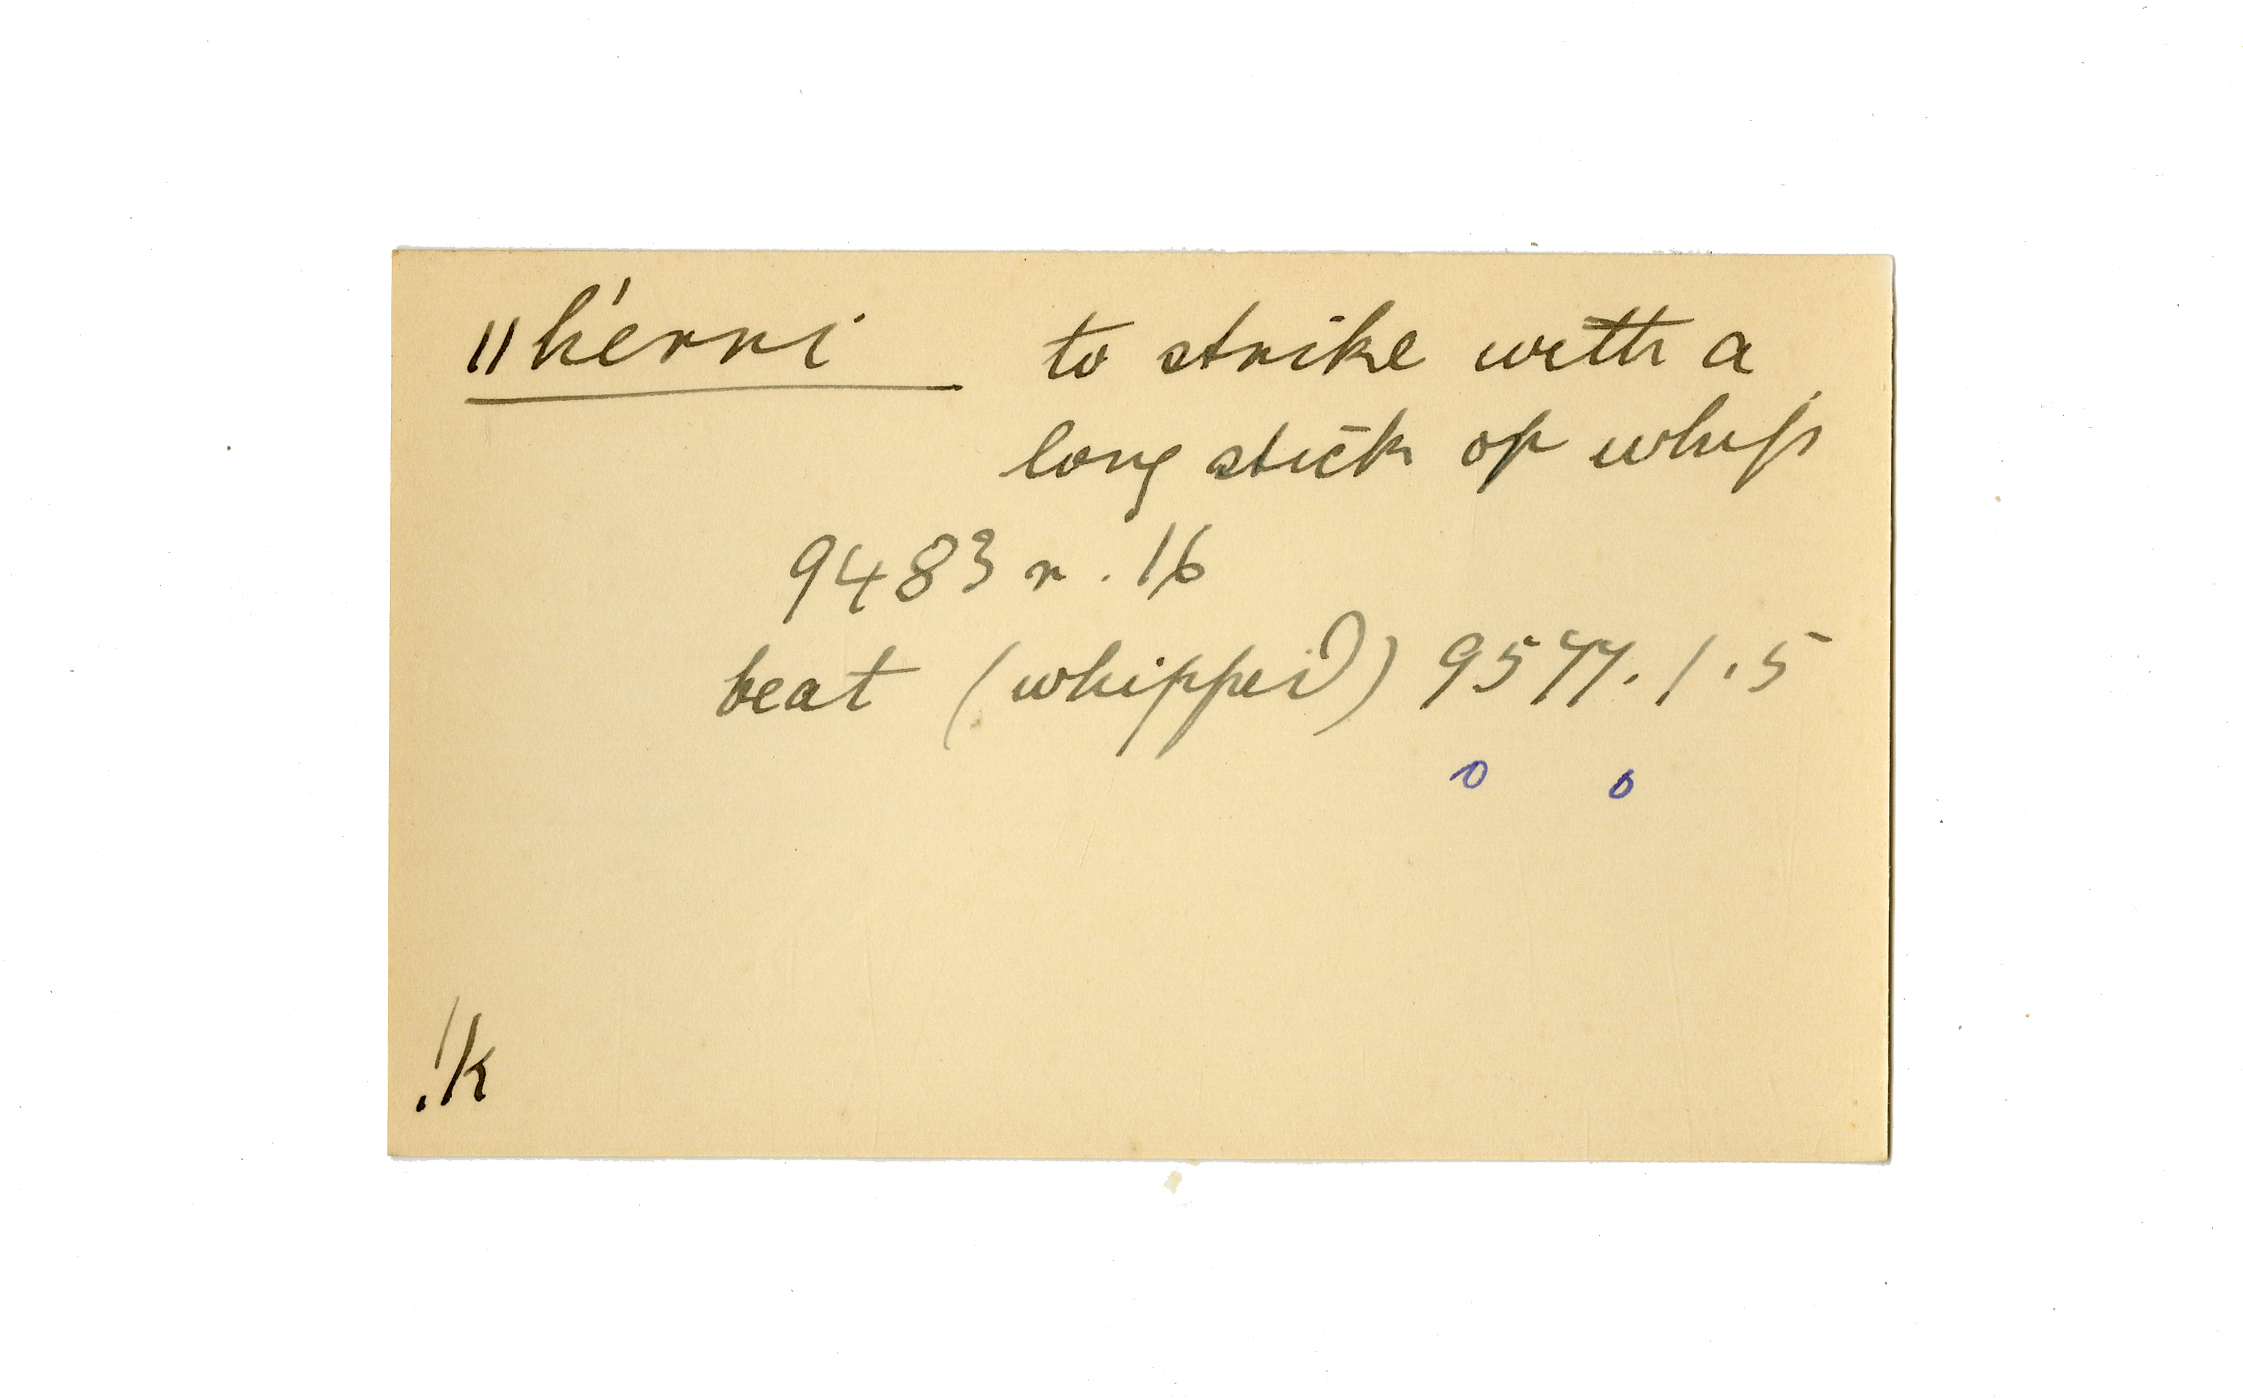 ǁkérri to strike with a
long stick or whip
9483 r. 16
beat (whipped) 9577. 1.5
o o
!k